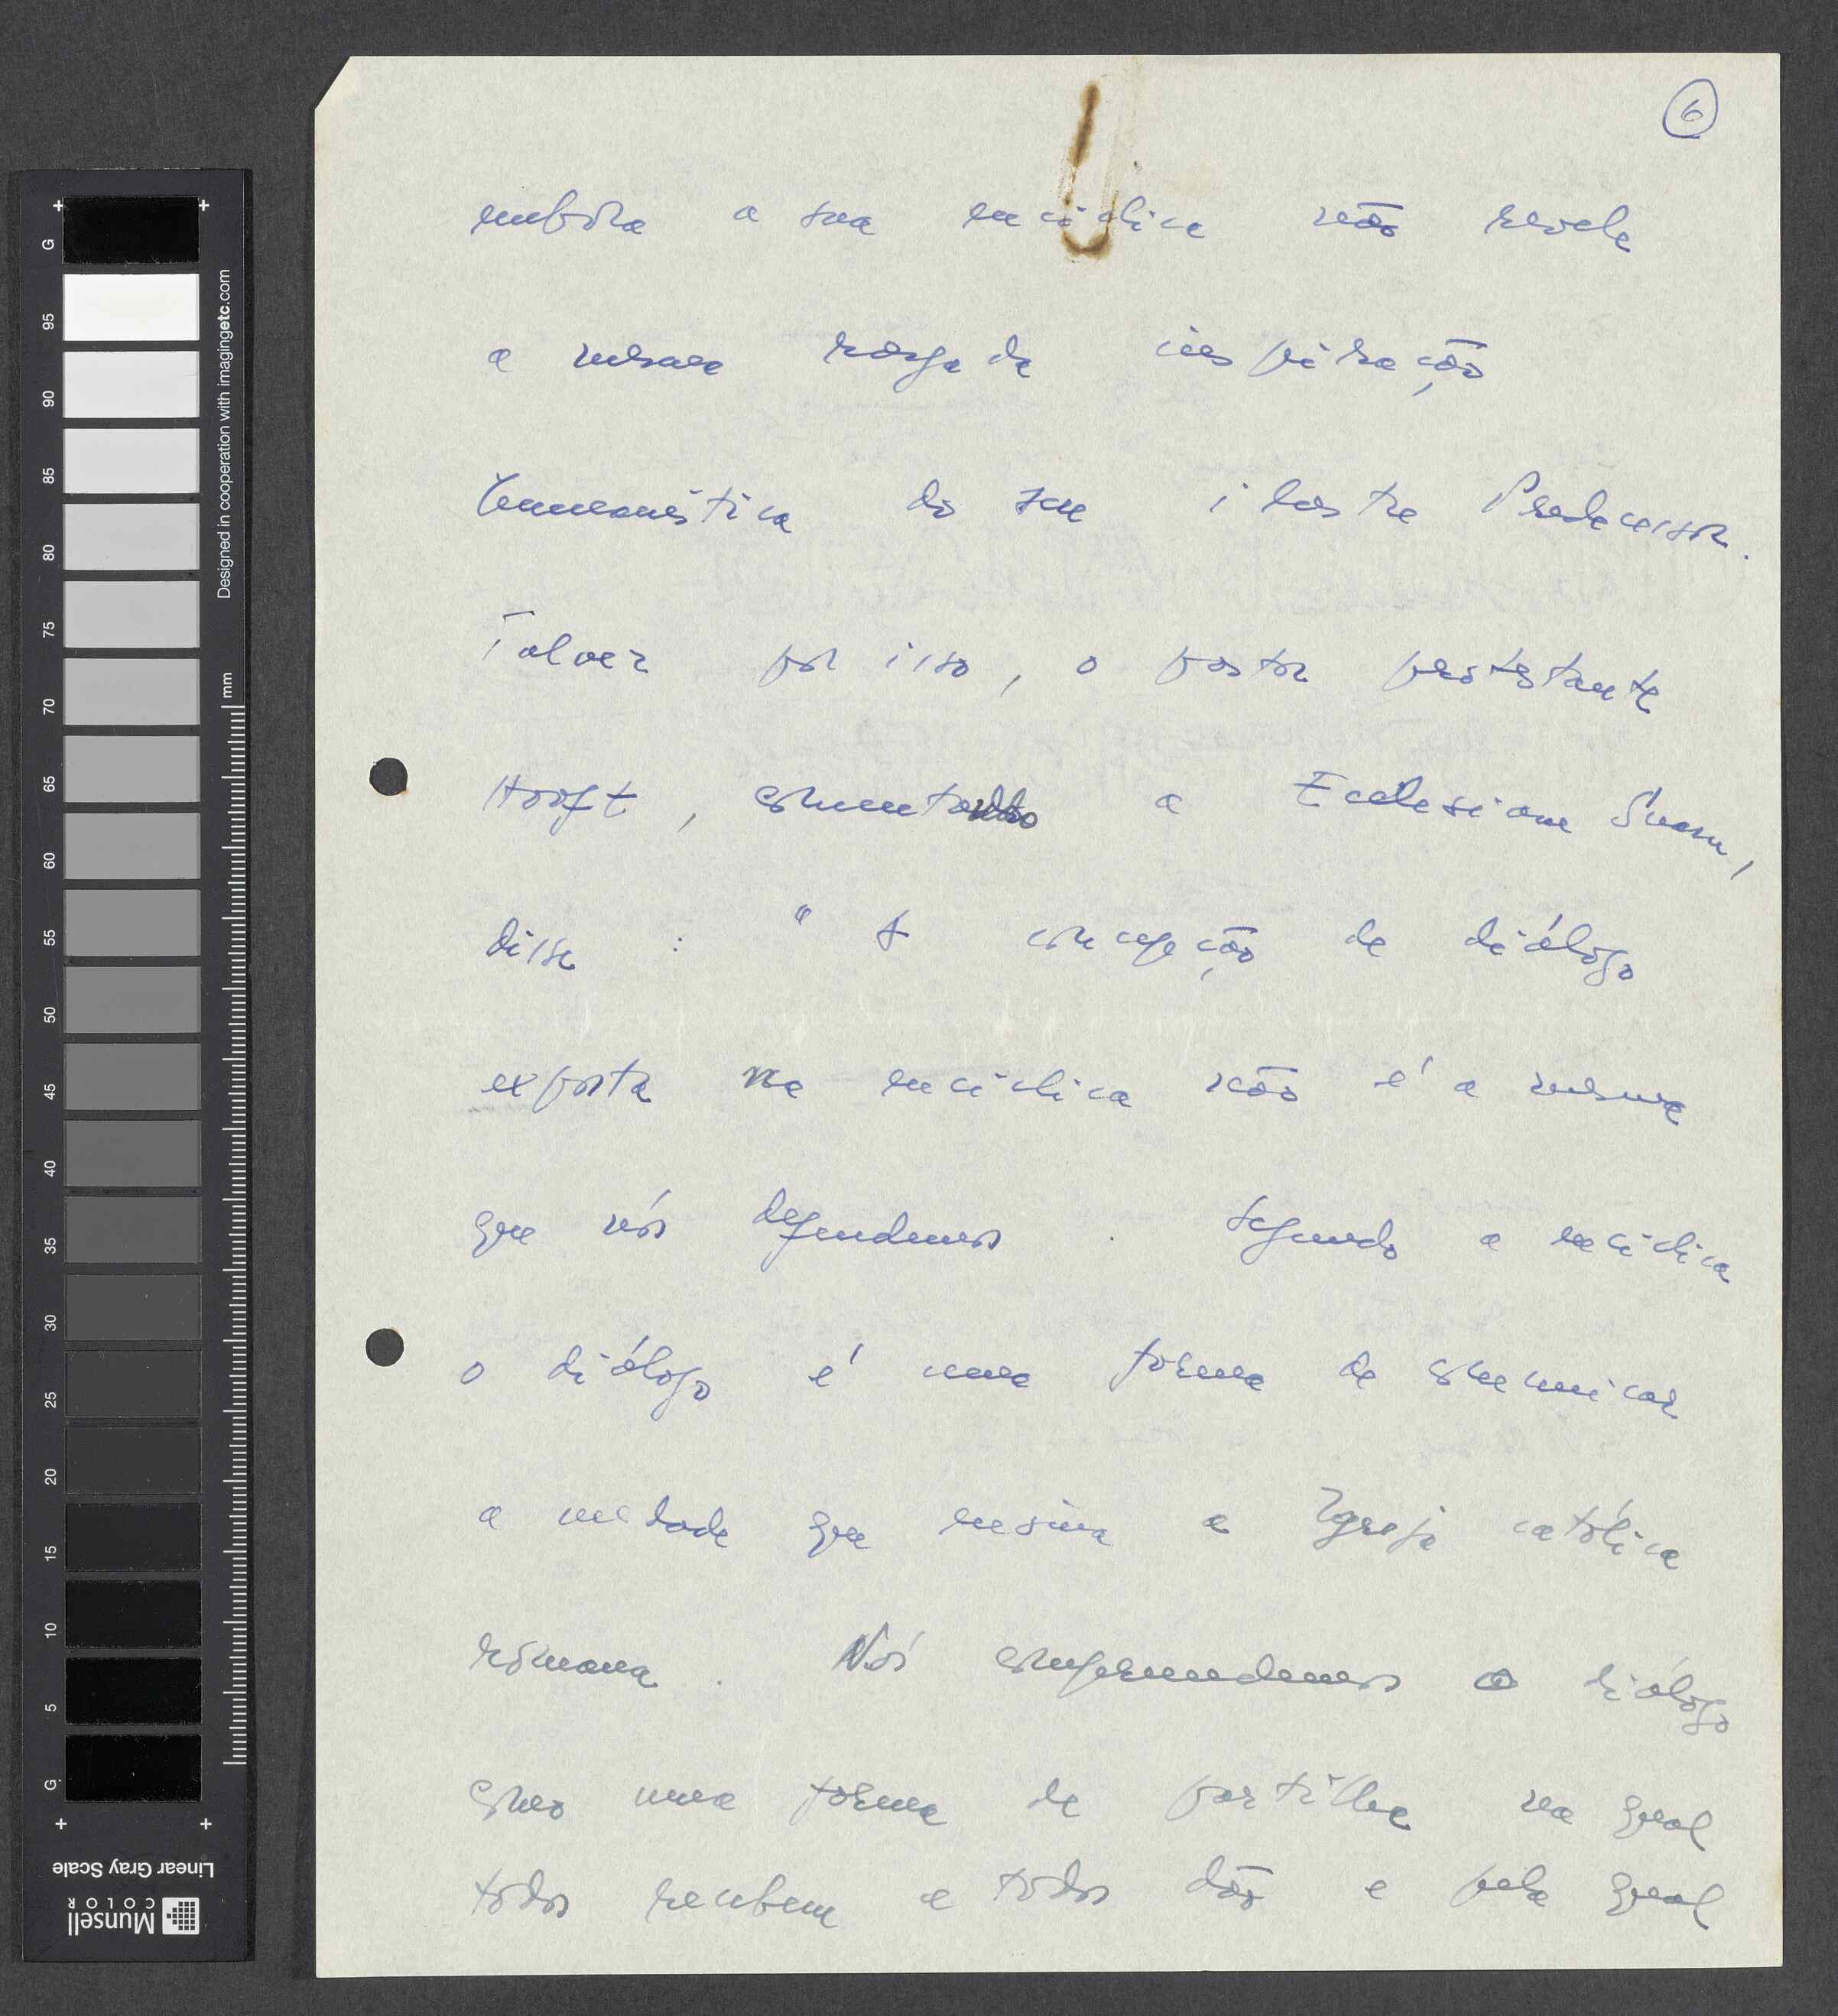 6
embora a sua encíclica não revele
a mesma rasgada inspiração
humanística do seu ilustre Predecessor.
Talvez por isso, o pastor protestante
Hooft, comentando a Ecclesiam Suam,
disse : "A concepção de diálogo
exposta na encíclica não é a mesma
que nós defendemos. Segundo a encíclica
o diálogo é uma forma de comunicar
a verdade que ensina a Igreja católica
romana. Nós compreendemos o diálogo
como uma forma de partilha na qual
todos recebem e todos dão e pela qual
G
95
90
85
80
75
70
65
60
55
50
45
40
35
30
25
20
15
10
5
G
Designed in cooperation with imagingetc.com
mm
Linear Gray Scale
Munsell
COLOR